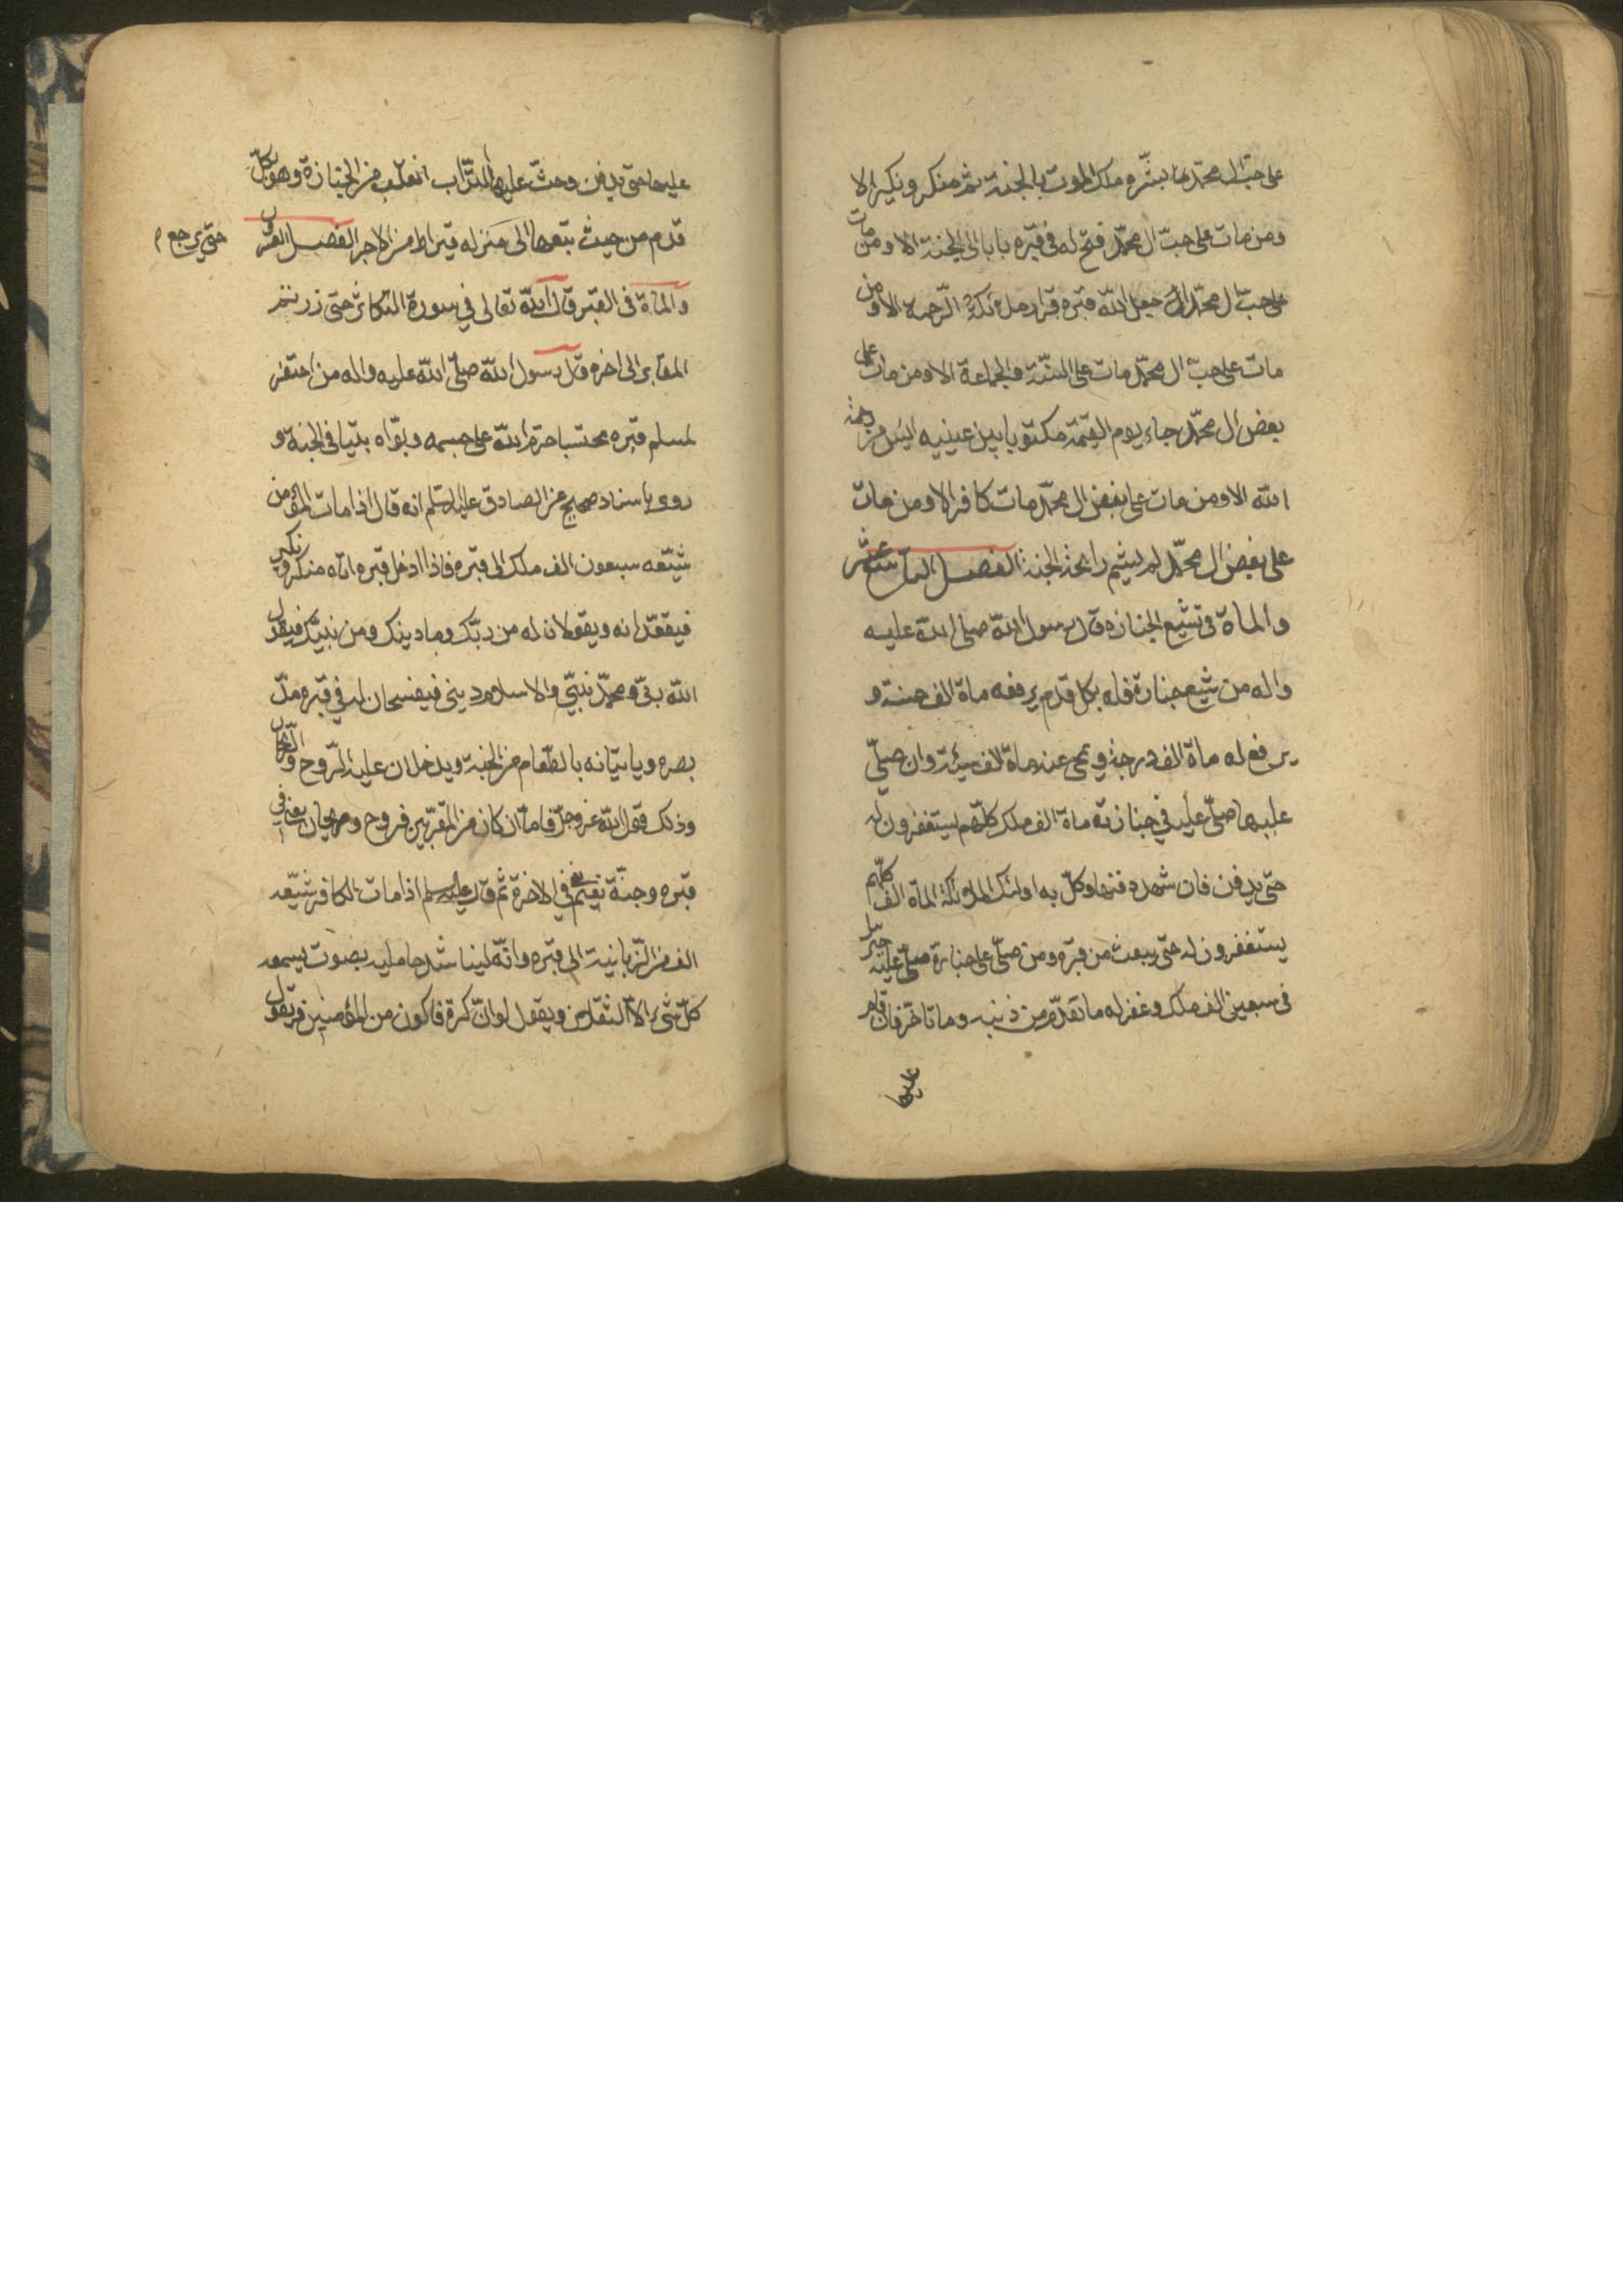 على حب ال محمد مات بشره ملك الموت بالجنة ثم منكر ونكير الا
ومن مات على حبّ ال محمّد فتح له فى قبره بابا الى الجنة الا ومن مات
على حبّ ال محمّد جعل الله قبره قرار ملئكة الرّحمة الا ومن
مات على حبّ ال محمّد مات على السنّة والجماعة الا ومن مات على
بغض ال محمّد جاء يوم القيمة مكتوبا بين عينيه ايس من رحمة
الله الا ومن مات على بغض ال محمّد مات كافرا الا ومن مات
على بغض ال محمّد لم يشم رائحة الجنة الفصل التاسع عشر
والماة فى تشيع الجنازه قال رسول الله صلى الله عليه
واله من شيع جنازة فله بكل قدم يرفعه ماة الف حسنة و
يرفع له ماة الف درجة ويمحى عنه ماة الف سيئة وان صلّى
عليها صلّى عليه فى جنازته ماة الف ملك كلّهم يستغفرون له
حتى يدفن فان شهد دفنها وكلّ به اولئك الملائكة الماة الف كلّهم
يستغفرون له حتى يبعث من قبره ومن صلّى على جنازة صلّى عليه جبرئيل
فى سبعين الف ملك وغفر له ما تقدّم من ذنبه وما تاخّر فان قام
عليها
عليها حتى يدفن وحثّ عليها التّراب انقلب من الجنازة وهو بكلّ
قدم من حيث تبعها الى منزله قيراط من الاجر الفصل العشرون
حتى يرجع م
والماة فى القبر قال الله تعالى فى سورة التكاثر حتى زرتم
المقابر الى اخره قال رسول الله صلّى الله عليه واله من احتفر
لمسلم قبره محتسبا حرّم الله على جسمه وبوّاه بيتا فى الجنة و
روى باسناد صحيح عن الصادق عليه السلم انه قال اذا مات المؤمن
شيّعه سبعون الف ملك الى قبره فاذا ادخل قبره اتاه منكر ونكير
فيقعدانه ويقولان له من ربّك وما دينك ومن نبيّك فيقول
الله ربّى ومحمّد نبيّى والاسلام دينى فيفسحان له فى قبره مدّ
بصره وياتيانه بالطّعام من الجنة ويدخلان عليه الرّوح والرّيحان
وذلك قول الله عز وجلّ فامّا ان كان من المقرّبين فروح وريحان يعنى فى
قبره وجنّة نعيم يعنى فى الاخرة ثم قال عليه السلم اذا مات الكافر شيّعه
الف من الزّبانية الى قبره وانّه ليناشد حامليه بصوت يسمعه
كلّ شىء الا الثقلان ويقول لو انّ لى كرة فاكون من المؤمنين فيقول